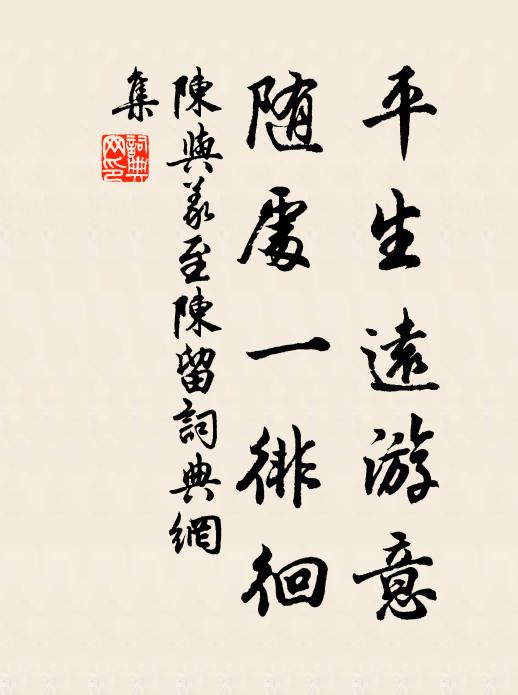 平生遠游意
随處一徘徊
陳與義至陳留詞典網
集
詞典
网印